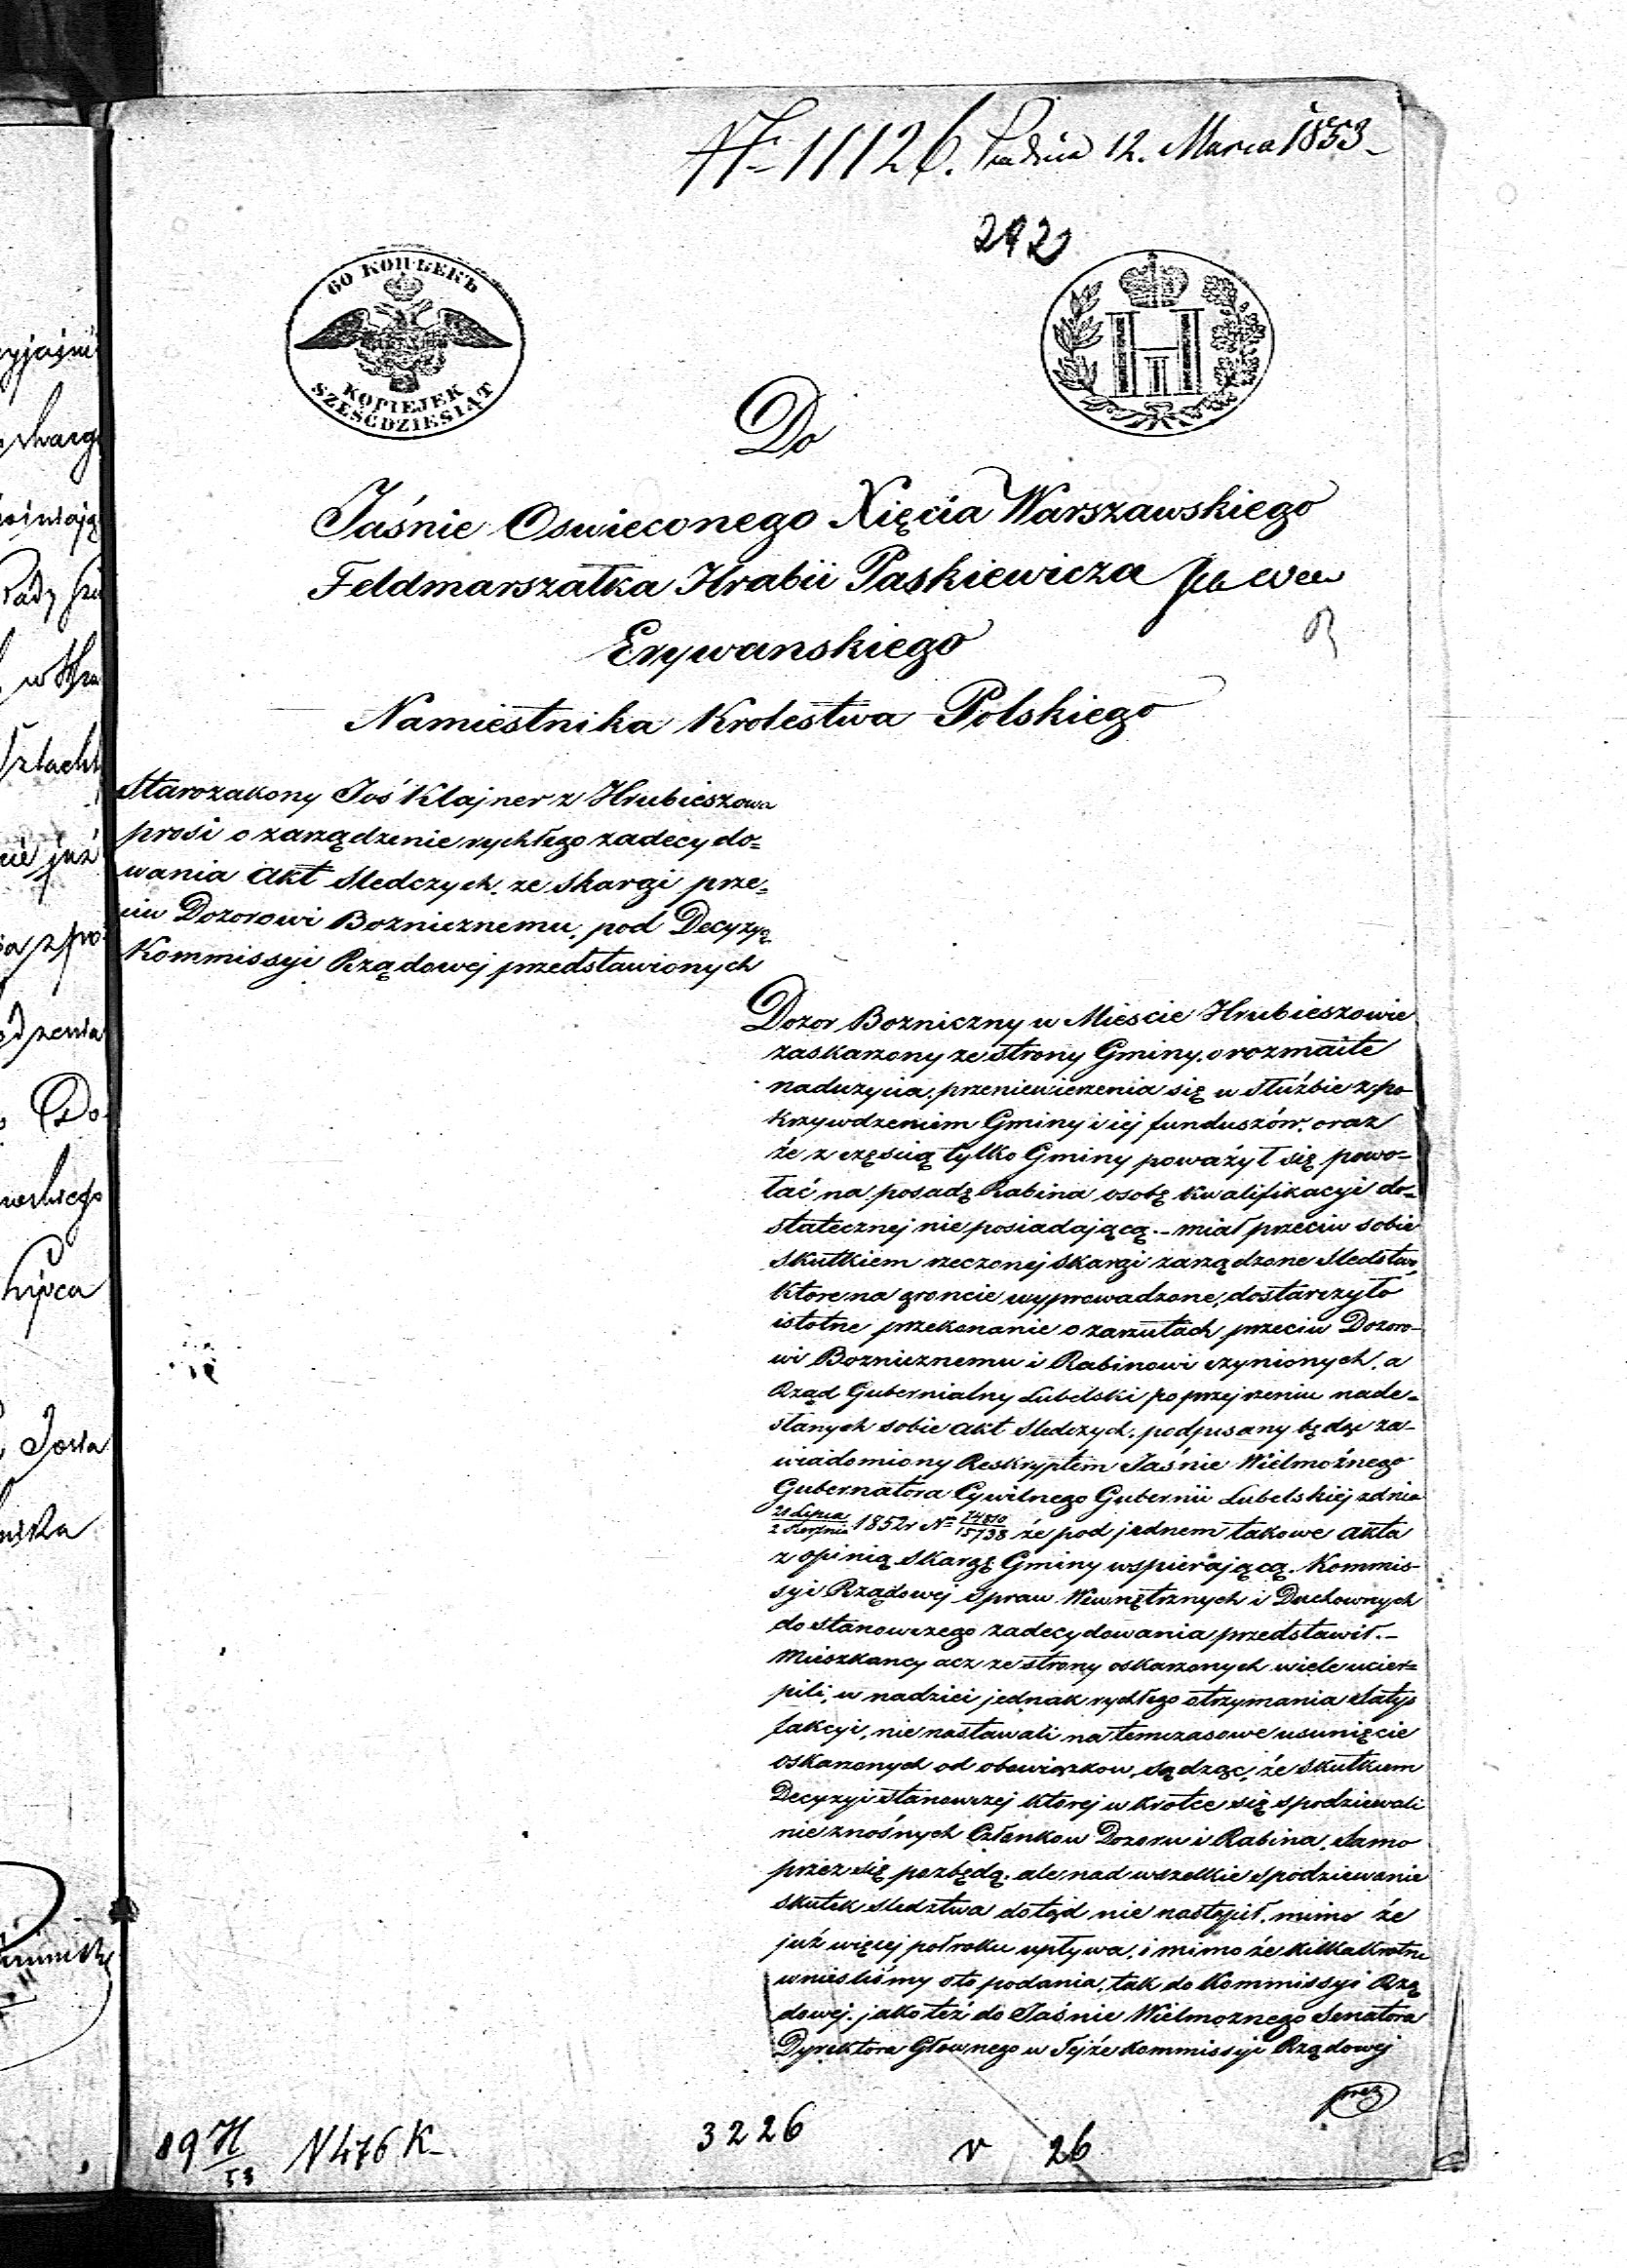 № 11126. 12. Marca 1853
292
60 КОПѢЕКЪ
KOPIEJEK
SZEŚĆDZIESIĄT
Н
Do
Jaśnie Oswieconego Xięcia Warszawskiego
Feldmarszałka Hrabii Paskiewicza
Erywanskiego
Namiestnika Krolestwa Polskiego
Starozakony Joś Klajner z Hrubieszowa
prosi o zarządzenie rychłego zadecydo=
wania Akt Sledczych. ze skargi prze=
ciw Dozorowi Boznicznemu, pod Decyzyą
Kommissyi Rządowej przedstawionych
Dozor Bozniczny w Miescie Hrubieszowie
zaskarzony ze strony Gminy, o rozmaite
naduzycia, przeniewierzenia się w służbie z po
krzywdzeniem Gminy i iéj funduszów, oraz
że z częscią tylko Gminy poważył się powo=
łać na posadę Rabina osobę kwalifikacyi do=
statecznej nie posiadającą.- miał przeciw sobie
skutkiem rzeczonej skargi zarządzone Sledstwo,
które na groncie wyprowadzone, dostarczyło
istotne przekonanie o zarzutach przeciw Dozoro-
wi Boznicznemu i Rabinowi czynionych, a
Rząd Gubernialny Lubelski po przejrzeniu nade-
słanych sobie Akt Sledczych, podpisany będąc za-
wiadomiony Reskryptem Jaśnie Wielmożnego
Gubernatora Cywilnego Gubernii Lubelskiéj z dnia
2 Sierpnia 1852 r № 15738 że pod jednem takowe Akta
z opinią skargę Gminy wspierającą, Kommis-
syi Rządowej Spraw Wewnętrznych i Duchownych
do stanowczego zadecydowania przedstawił.-
Mieszkancy acz ze strony oskarzonych wiele ucier=
pili, w nadziei jednak rychłego otrzymania Satys
fakcyi, nie nastawali na temczasowe usunięcie
oskarzonych od obowiązkow, sądząc, że skutkiem
Decyzyi stanowczej ktorej w krotce się spodziewali
nieznośnych Członkow Dozoru i Rabina, samo
przez się pozbędą, ale nad wszelkie spodziewanie
skutek sledztwa dotąd nie nastąpił, mimo że
już więcej poł roku upływa, i mimo że kilkakrotnie
wniesliśmy o to podania, tak do Kommissyi Rzą
dowej, jako też do Jaśnie Wielmoznego Senatora
Dyrektora Głownego w Tejże Kommissyi Rządowej
prez
N 476 K
3226
26